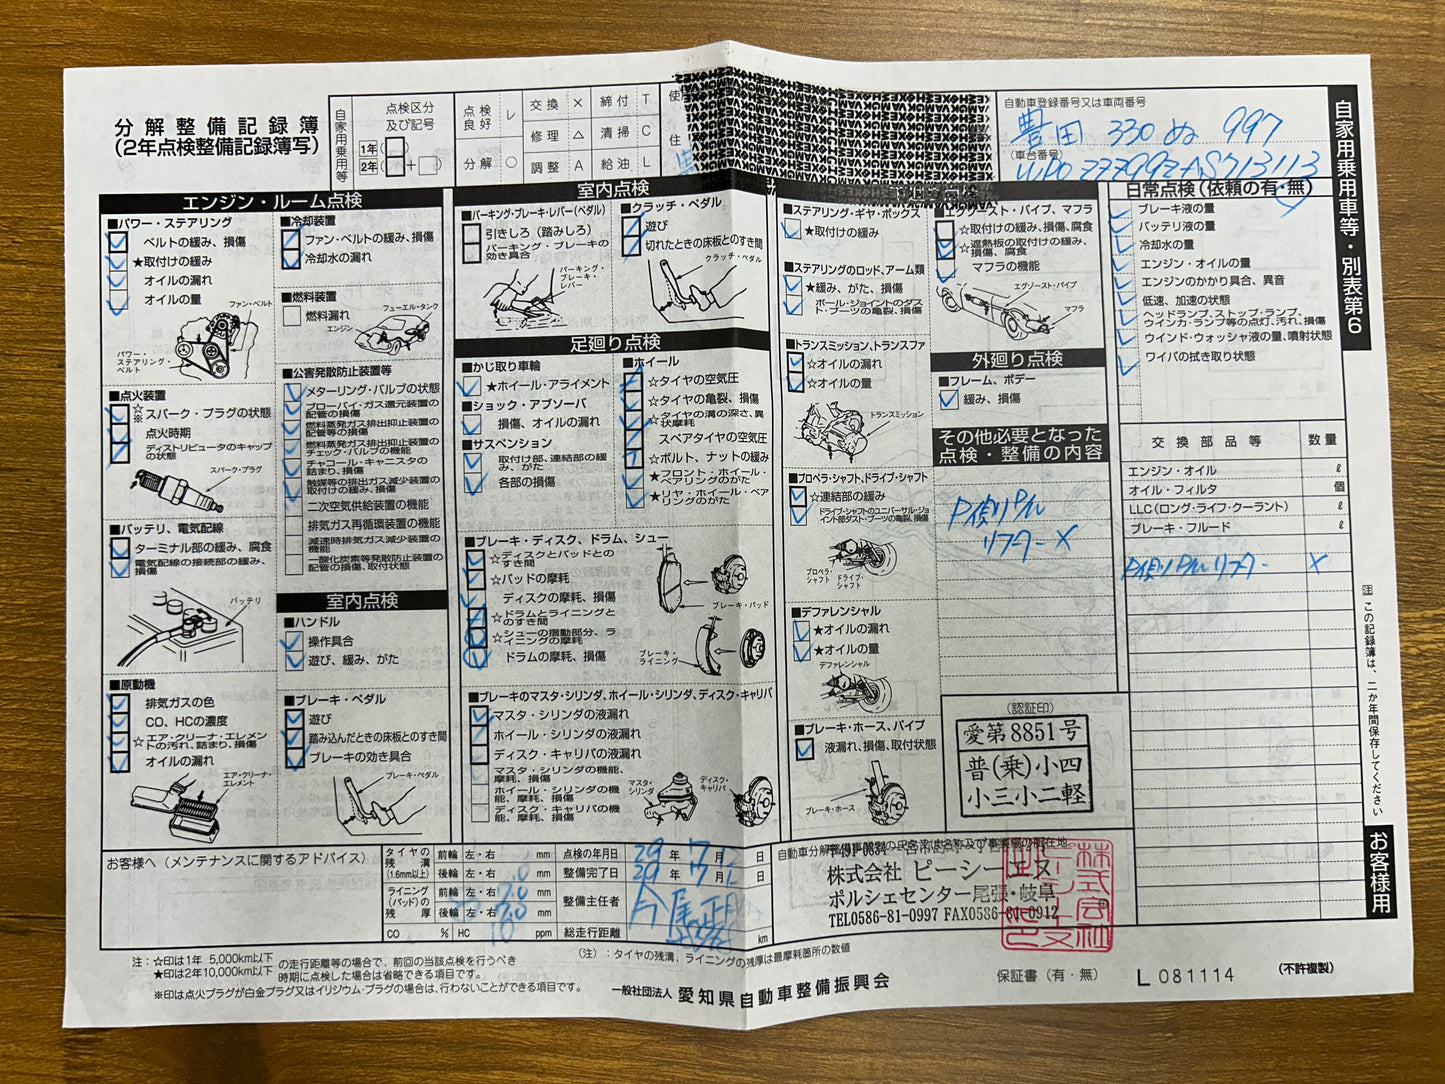 分解整備記録簿
(2年点検整備記録簿写)
自家用乗用等
点検区分
及び記号
1年
2年
点検良好 レ
分解 ○
交換 ×
修理 △
調整 A
締付 T
清掃 C
給油 L
使
住
自動車登録番号又は車両番号
豊田 330 ぬ 997
(車台番号)
WP0ZZZ99ZAS713113
自家用乗用車等・別表第6
エンジン・ルーム点検
■パワー・ステアリング
ベルトの緩み、損傷
★取付けの緩み
オイルの漏れ
オイルの量
ファン・ベルト
パワー・ステアリング・ベルト
■点火装置
☆※スパーク・プラグの状態
点火時期
ディストリビュータのキャップの状態
スパーク・プラグ
■バッテリ、電気配線
ターミナル部の緩み、腐食
電気配線の接続部の緩み、損傷
バッテリ
■原動機
排気ガスの色
CO、HCの濃度
☆エア・クリーナ・エレメントの汚れ、詰まり、損傷
オイルの漏れ
エア・クリーナ・エレメント
■冷却装置
ファン・ベルトの緩み、損傷
冷却水の漏れ
■燃料装置
燃料漏れ
フューエル・タンク
エンジン
■公害発散防止装置等
メターリング・バルブの状態
ブローバイ・ガス還元装置の配管の損傷
燃料蒸発ガス排出抑止装置の配管等の損傷
燃料蒸発ガス排出抑止装置のチェック・バルブの機能
チャコール・キャニスタの詰まり、損傷
触媒等の排出ガス減少装置の取付けの緩み、損傷
二次空気供給装置の機能
排気ガス再循環装置の機能
減速時排気ガス減少装置の機能
一酸化炭素等発散防止装置の配管の損傷、取付状態
室内点検
■ハンドル
操作具合
遊び、緩み、がた
■ブレーキ・ペダル
遊び
踏み込んだときの床板とのすき間
ブレーキの効き具合
ブレーキ・ペダル
室内点検
■パーキング・ブレーキ・レバー(ペダル)
引きしろ(踏みしろ)
パーキング・ブレーキの効き具合
パーキング・ブレーキ・レバー
■クラッチ・ペダル
遊び
切れたときの床板とのすき間
クラッチ・ペダル
足廻り点検
■かじ取り車輪
★ホイール・アライメント
■ショック・アブソーバ
損傷、オイルの漏れ
■サスペンション
取付部、連結部の緩み、がた
各部の損傷
■ホイール
☆タイヤの空気圧
☆タイヤの亀裂、損傷
☆タイヤの溝の深さ、異状摩耗
スペアタイヤの空気圧
☆ボルト、ナットの緩み
★フロント・ホイール・ベアリングのがた
★リヤ・ホイール・ベアリングのがた
■ブレーキ・ディスク、ドラム、シュー
☆ディスクとパッドとのすき間
☆パッドの摩耗
ディスクの摩耗、損傷
☆ドラムとライニングとのすき間
☆シューの摺動部分、ライニングの摩耗
ドラムの摩耗、損傷
ブレーキ・パッド
ブレーキ・ライニング
■ブレーキのマスタ・シリンダ、ホイール・シリンダ、ディスク・キャリパ
マスタ・シリンダの液漏れ
ホイール・シリンダの液漏れ
ディスク・キャリパの液漏れ
マスタ・シリンダの機能、摩耗、損傷
ホイール・シリンダの機能、摩耗、損傷
ディスク・キャリパの機能、摩耗、損傷
マスタ・シリンダ
ディスク・キャリパ
■ステアリング・ギヤ・ボックス
★取付けの緩み
■ステアリングのロッド、アーム類
★緩み、がた、損傷
ボール・ジョイントのダスト・ブーツの亀裂、損傷
■トランスミッション、トランスファ
☆オイルの漏れ
☆オイルの量
トランスミッション
■プロペラ・シャフト、ドライブ・シャフト
☆連結部の緩み
ドライブ・シャフトのユニバーサル・ジョイント部ダスト・ブーツの亀裂、損傷
プロペラ・シャフト
ドライブ・シャフト
■デファレンシャル
★オイルの漏れ
★オイルの量
デファレンシャル
■ブレーキ・ホース、パイプ
液漏れ、損傷、取付状態
ブレーキ・ホース
■エグゾースト・パイプ、マフラ
☆取付けの緩み、損傷、腐食
☆遮熱板の取付けの緩み、損傷、腐食
マフラの機能
エグゾースト・パイプ
マフラ
外廻り点検
■フレーム、ボデー
緩み、損傷
その他必要となった点検・整備の内容
P側リアル
リフター ×
(認証印)
愛第8851号
普(乗)小四
小三小二軽
日常点検(依頼の有・無)
ブレーキ液の量
バッテリ液の量
冷却水の量
エンジン・オイルの量
エンジンのかかり具合、異音
低速、加速の状態
ヘッドランプ、ストップ・ランプ、ウインカ・ランプ等の点灯、汚れ、損傷
ウインド・ウォッシャ液の量、噴射状態
ワイパの拭き取り状態
交換部品等 数量
エンジン・オイル ℓ
オイル・フィルタ 個
LLC(ロング・ライフ・クーラント) ℓ
ブレーキ・フルード ℓ
リフター ×
注 この記録簿は、二か年間保存してください
お客様用
お客様へ(メンテナンスに関するアドバイス)
タイヤの残溝(1.6mm以上)
前輪 左・右 mm
後輪 左・右 mm
ライニング(パッド)の残厚
前輪 左・右 7.0 mm
後輪 左・右 7.0 mm
CO % HC 10 ppm
点検の年月日 29年 7月 12日
整備完了日 29年 7月 日
整備主任者
総走行距離 km
自動車分解整備事業者の氏名又は名称及び事業場の所在地
株式会社 ピーシーエヌ
ポルシェセンター尾張・岐阜
TEL0586-81-0997 FAX0586-81-0912
注:☆印は1年 5,000km以下
★印は2年10,000km以下
の走行距離等の場合で、前回の当該点検を行うべき時期に点検した場合は省略できる項目です。
※印は点火プラグが白金プラグ又はイリジウム・プラグの場合は、行わないことができる項目です。
(注):タイヤの残溝、ライニングの残厚は最摩耗箇所の数値
一般社団法人 愛知県自動車整備振興会
保証書(有・無)
L 081114
(不許複製)